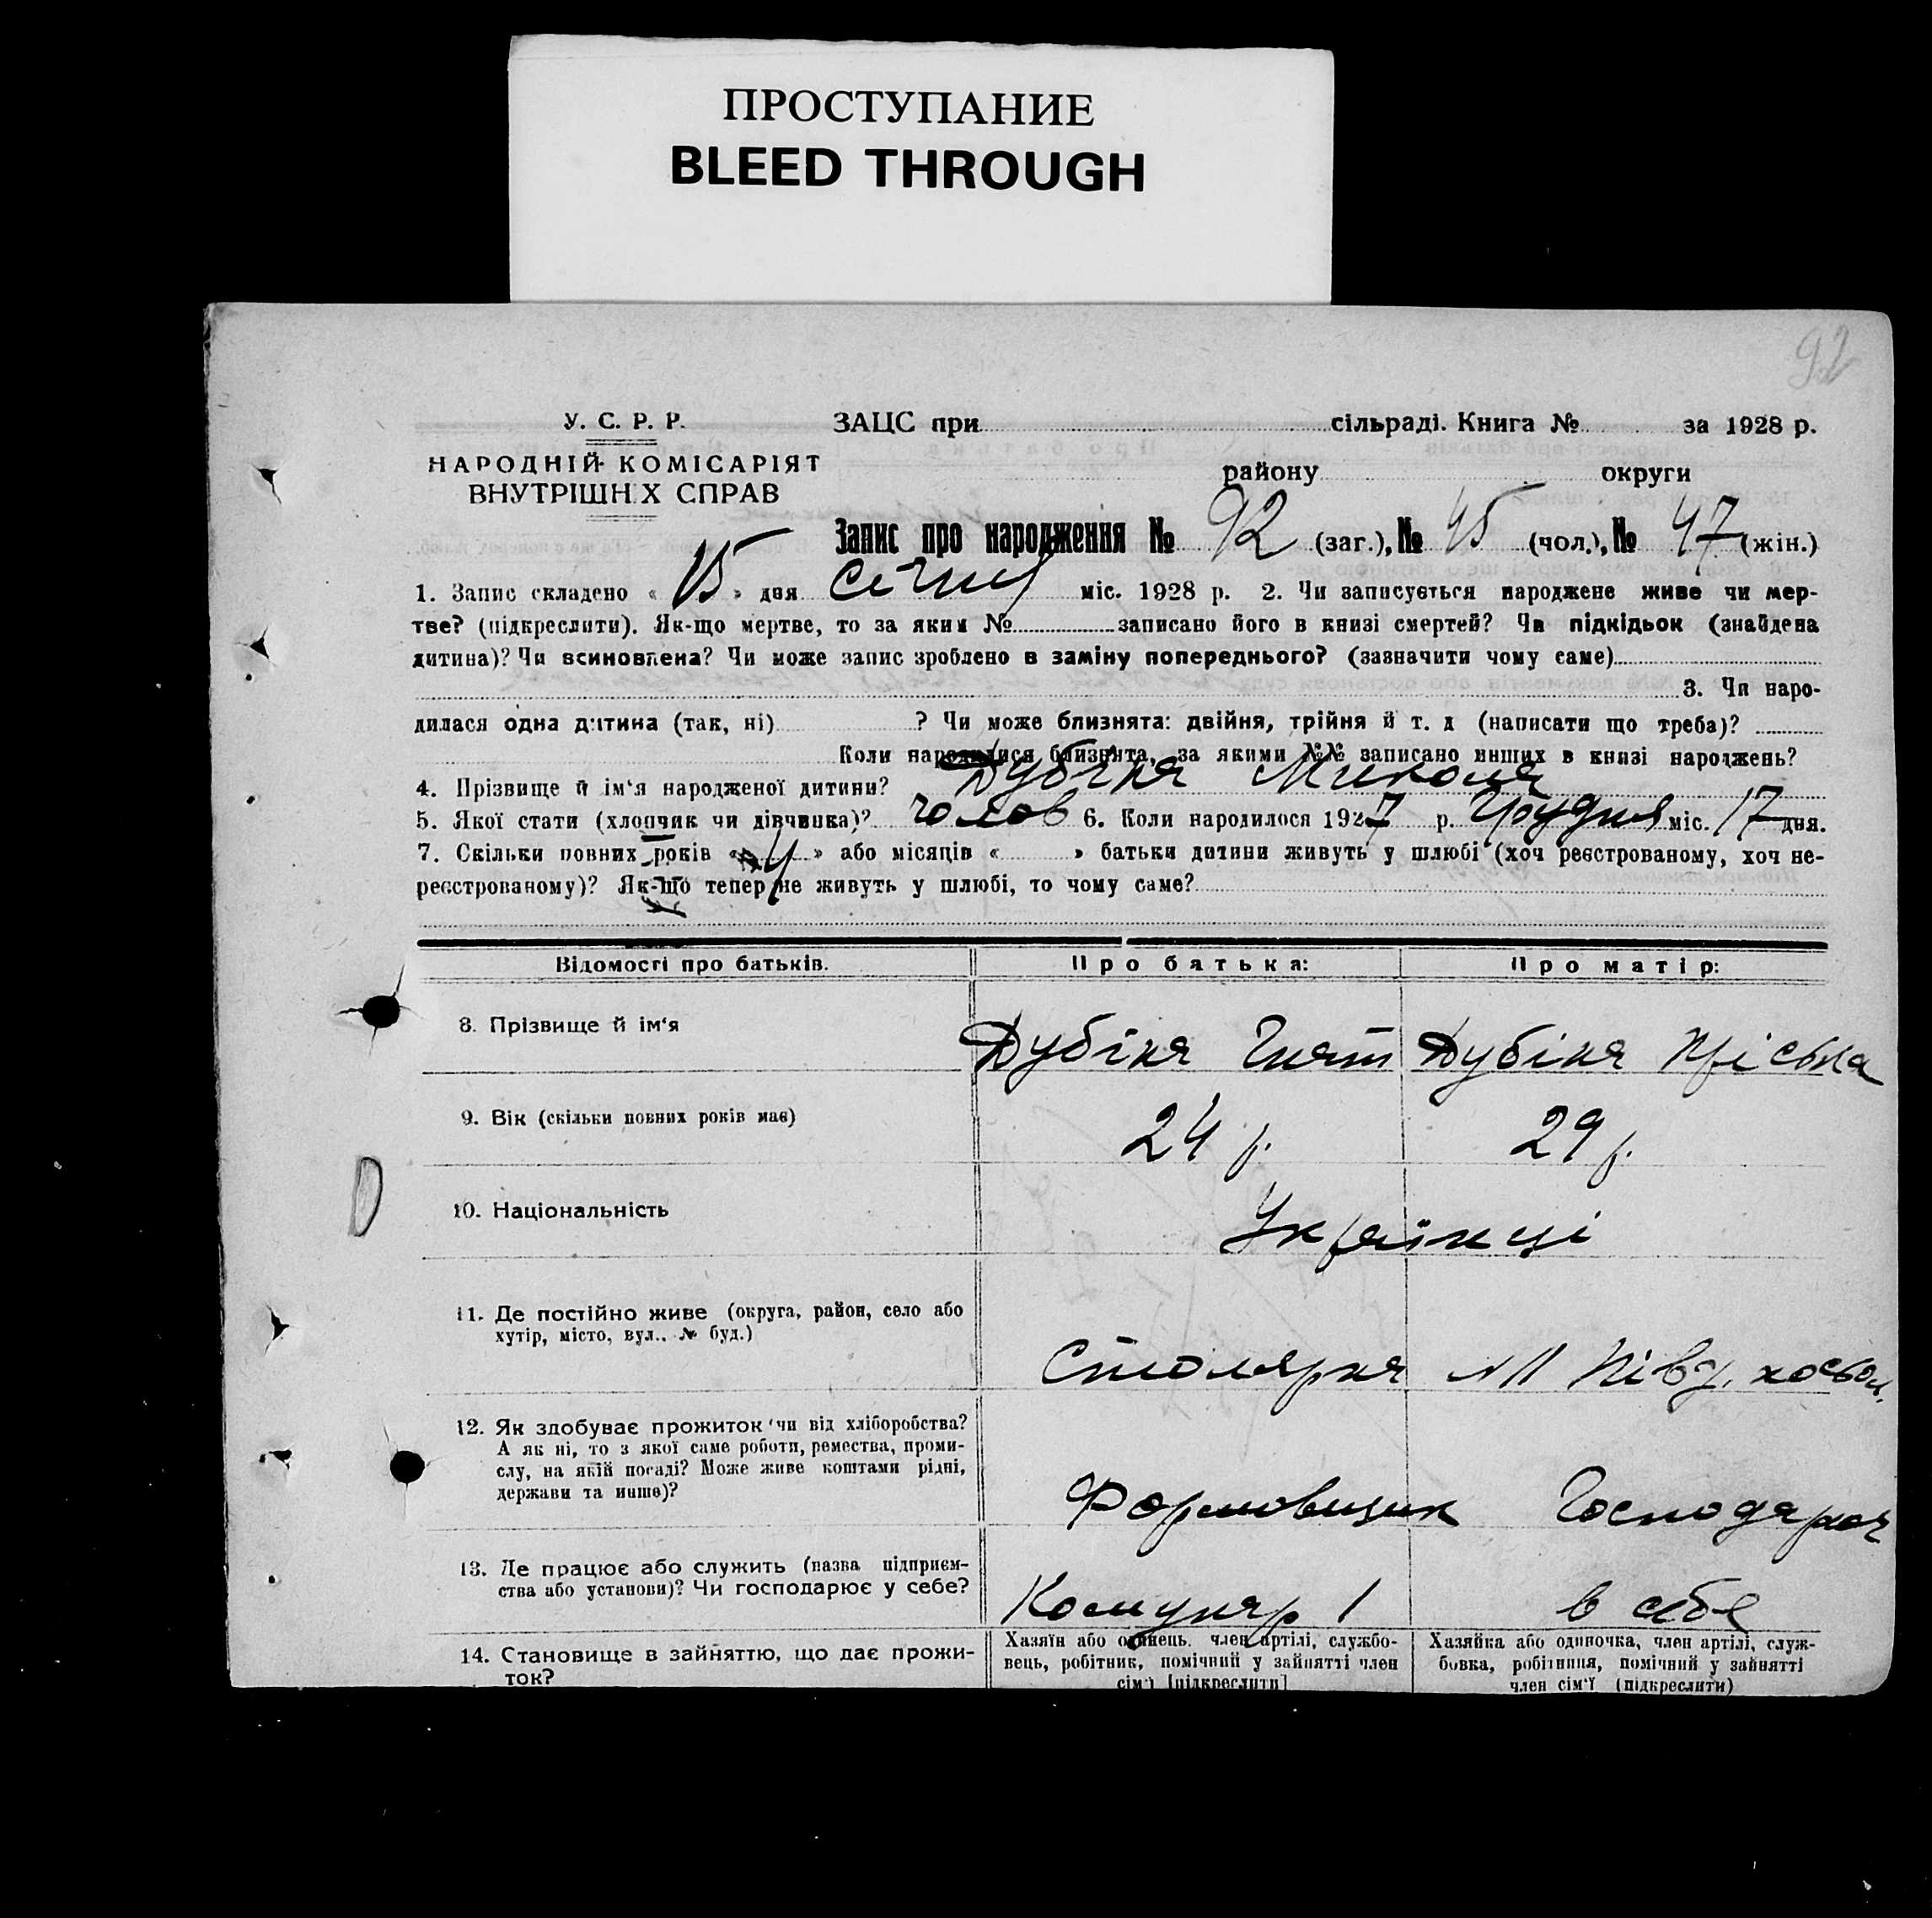 ПРОСТУПАНИЕ
BLEED THROUGH
92
У. С. Р. Р. ЗАЦС при сільраді. Книга № за 1928 р.
НАРОДНІЙ КОМІСАРІЯТ
ВНУТРІШНІХ СПРАВ
району округи
Запис про народження № 92 (заг.), № 45 (чол.), № 47 (жін.)
1. Запис складено « 15 » дня Січня міс. 1928 р. 2. Чи записується народжене живе чи мер-
тве? (підкреслити). Як-що мертве, то за яким № записано його в книзі смертей? Чи підкідьок (знайдена
дитина)? Чи всиновлена? Чи може запис зроблено в заміну попереднього? (зазначити чому саме)
3. Чи наро-
дилася одна дитина (так, ні) ? Чи може близнята: двійня, трійня й т. д (написати що треба)?
Коли народилися близнята, за якими №№ записано инших в книзі народжень?
4. Прізвище й ім'я народженої дитини? Дубіна Микола
5. Якої стати (хлопчик чи дівчинка)? чолов 6. Коли народилося 1927 р. Грудня міс. 17 дня.
7. Скільки повних років « 4 » або місяців « » батьки дитини живуть у шлюбі (хоч реєстрованому, хоч не-
реєстрованому)? Як-що тепер не живуть у шлюбі, то чому саме?
Відомості про батьків. Про батька: Про матір:
8. Прізвище й ім'я Дубіна Гнат Дубіна Пріська
9. Вік (скільки повних років має) 24 р. 29 р.
10. Національність Українці
11. Де постійно живе (округа, район, село або
хутір, місто, вул., № буд.)
Столярна №11 Півд.
12. Як здобуває прожиток (чи від хліборобства?
А як ні, то з якої саме роботи, ремества, проми-
слу, на якій посаді? Може живе коштами рідні,
держави та инше)?
Формовщик Господарює
13. Де працює або служить (назва підприєм-
ства або установи)? Чи господарює у себе?
Комунар 1 в себе
14. Становище в зайняттю, що дає прожи-
ток?
Хазяїн або одинець, член артілі, службо-
вець, робітник, помічний у зайнятті член
сім'ї [підкреслити]
Хазяйка або одиночка, член артілі, служ-
бовка, робітниця, помічний у зайнятті
член сім'ї (підкреслити)